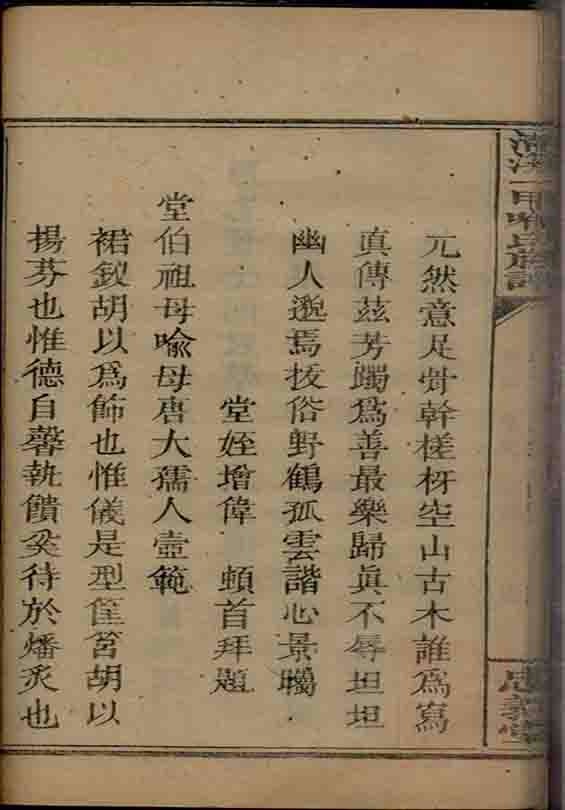 清溪一甲喻氏族譜
忠義堂
元然意足骨幹槎枒空山古木誰爲寫
真傳茲芳躅爲善最樂歸眞不辱坦坦
幽人邈焉拔俗野鶴孤雲諧心景矚
堂姪增偉　頓首拜題
堂伯祖母喻母唐大孺人壼範
裙釵胡以爲飾也惟儀是型筐筥胡以
揚芬也惟德自馨執饋奚待於燔炙也